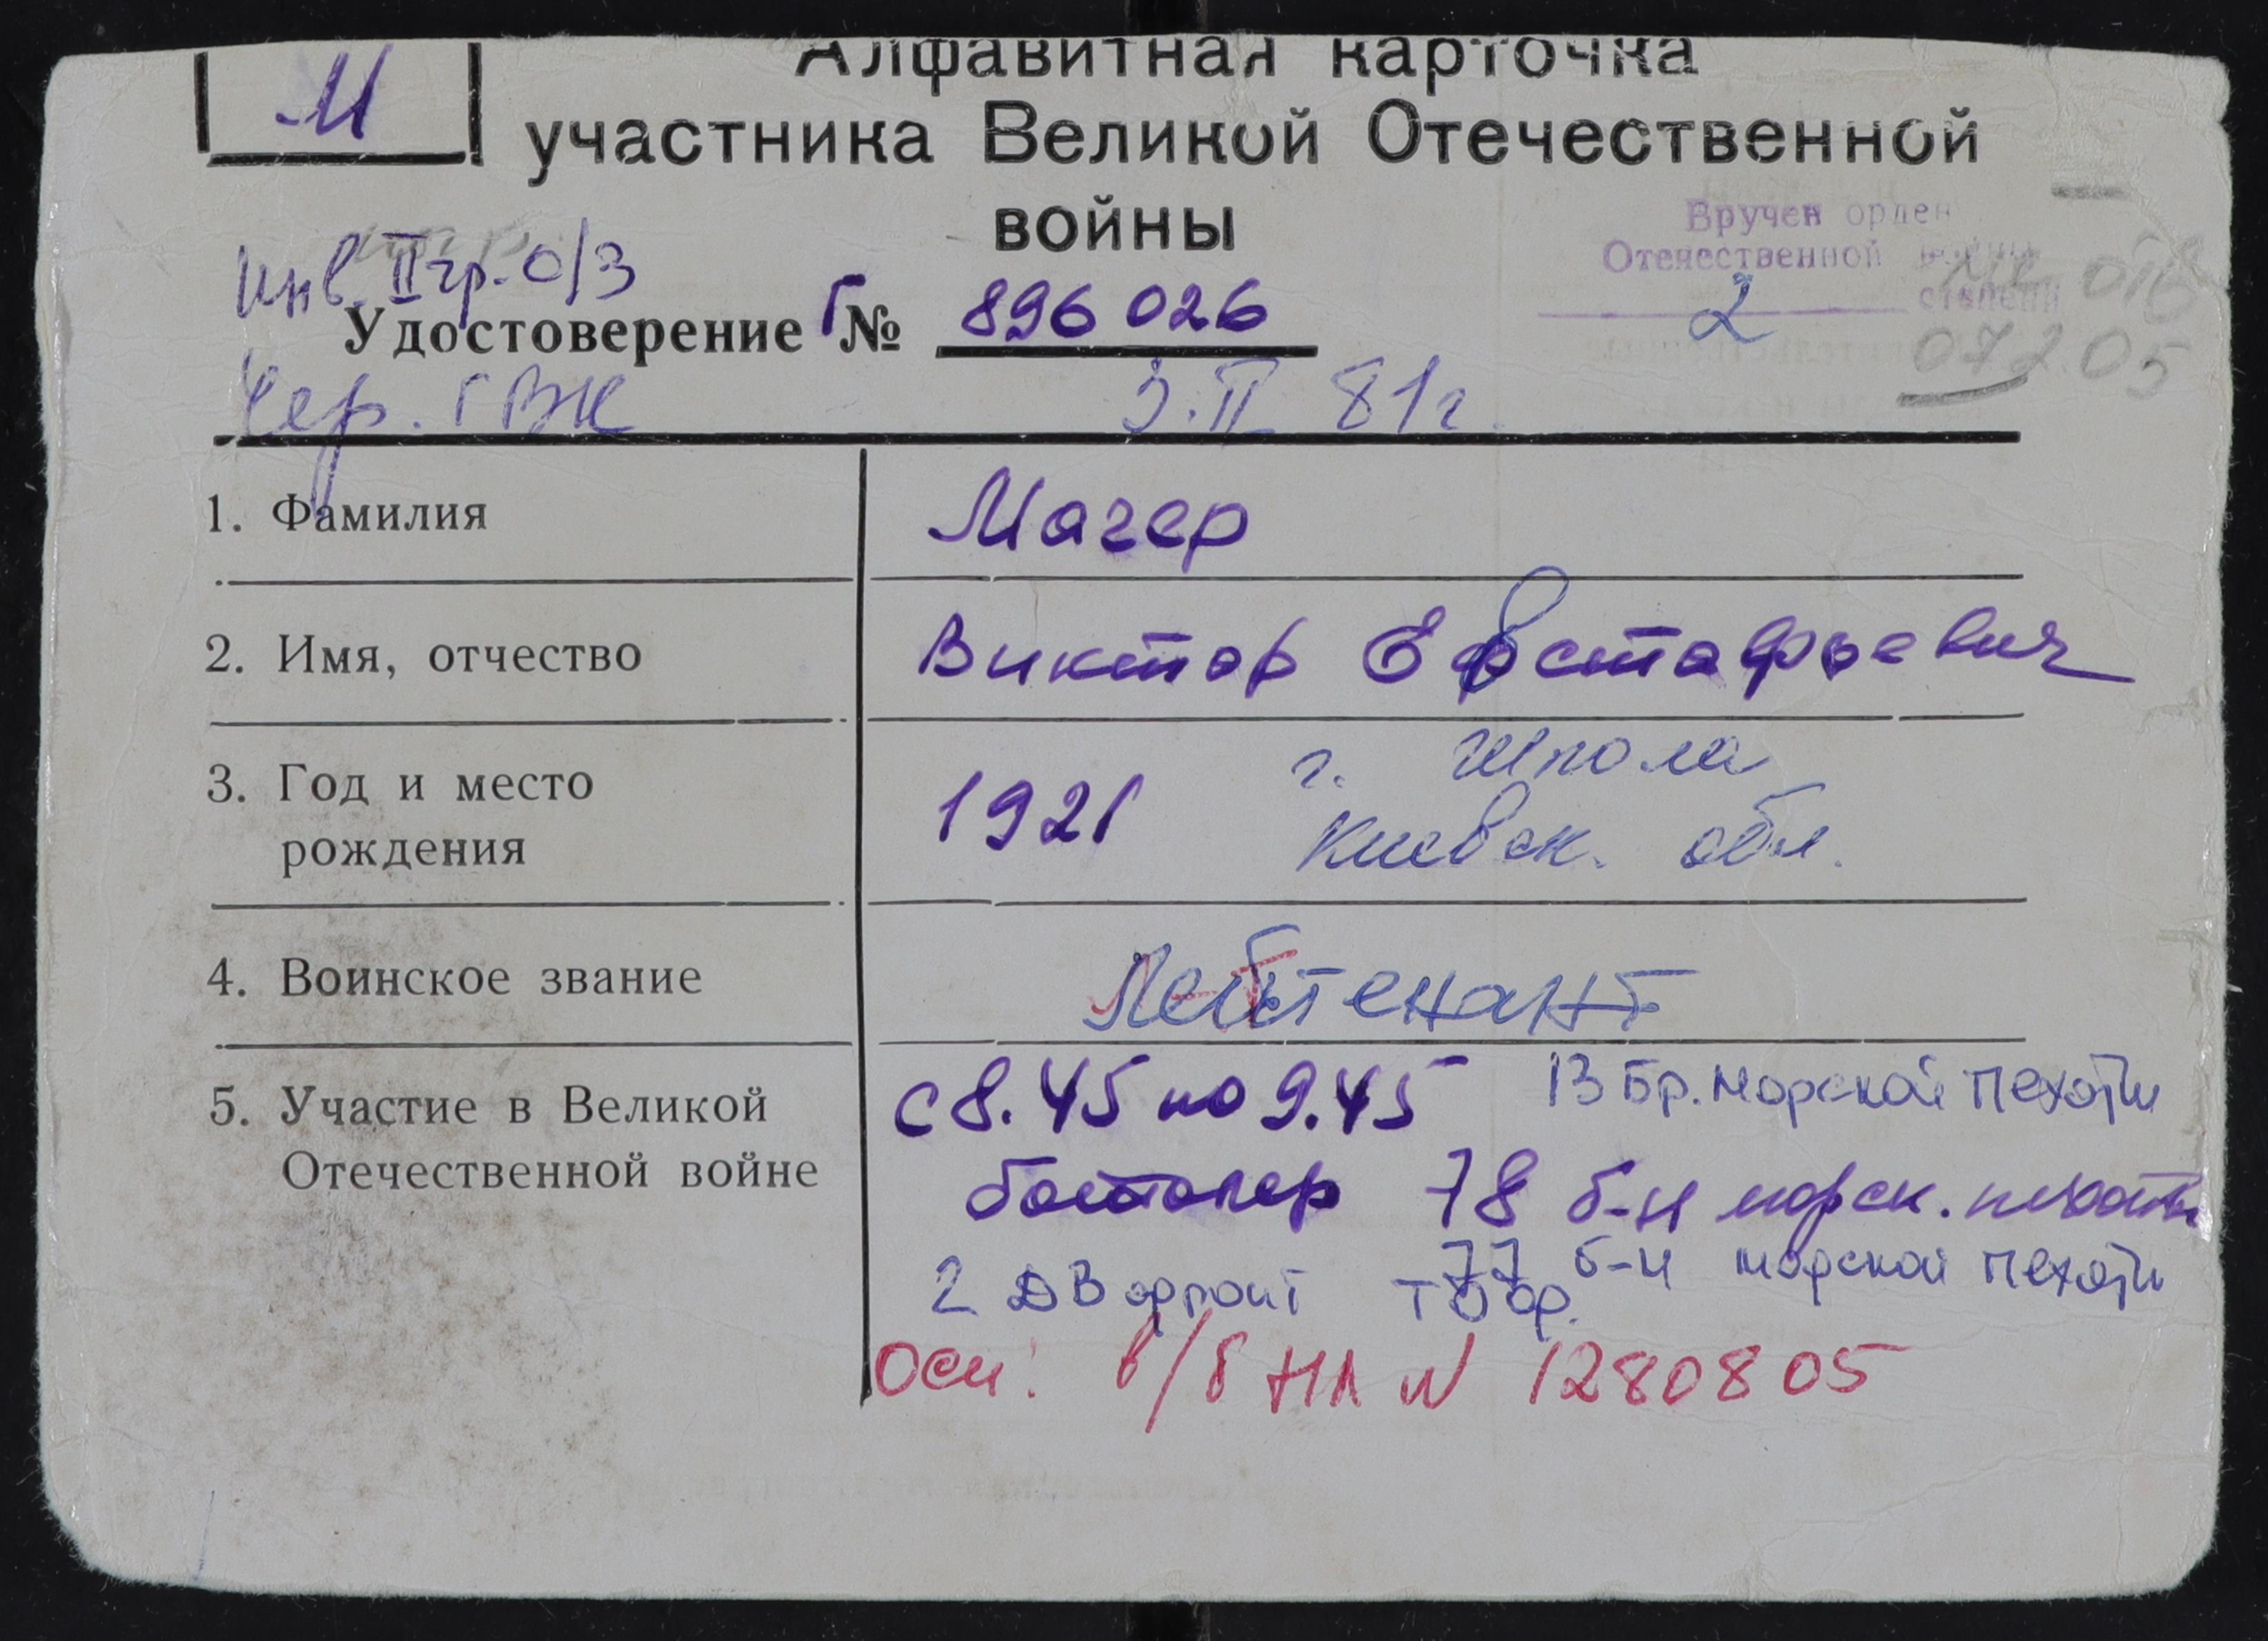 М
Алфавитная карточка
участника Великой Отечественной
войны
Вручен орден
Отечественной войны
2 степени
Инв. II гр. О/З
Удостоверение Г № 896 026
072.05
Чер. ГВК 3.II 81г.
1. Фамилия Магер
2. Имя, отчество Виктор Евстафьевич
3. Год и место
рождения
1921 г. Шпола
Киевск. обл.
4. Воинское звание Лейтенант
5. Участие в Великой
Отечественной войне
с 8.45 по 9.45 13 Бр. морской пехоты
78 б-н морск. пехоты
77 б-н морской пехоты
2 ДВ фронт ТОФ.
Осн: в/б НЛ N 1280805